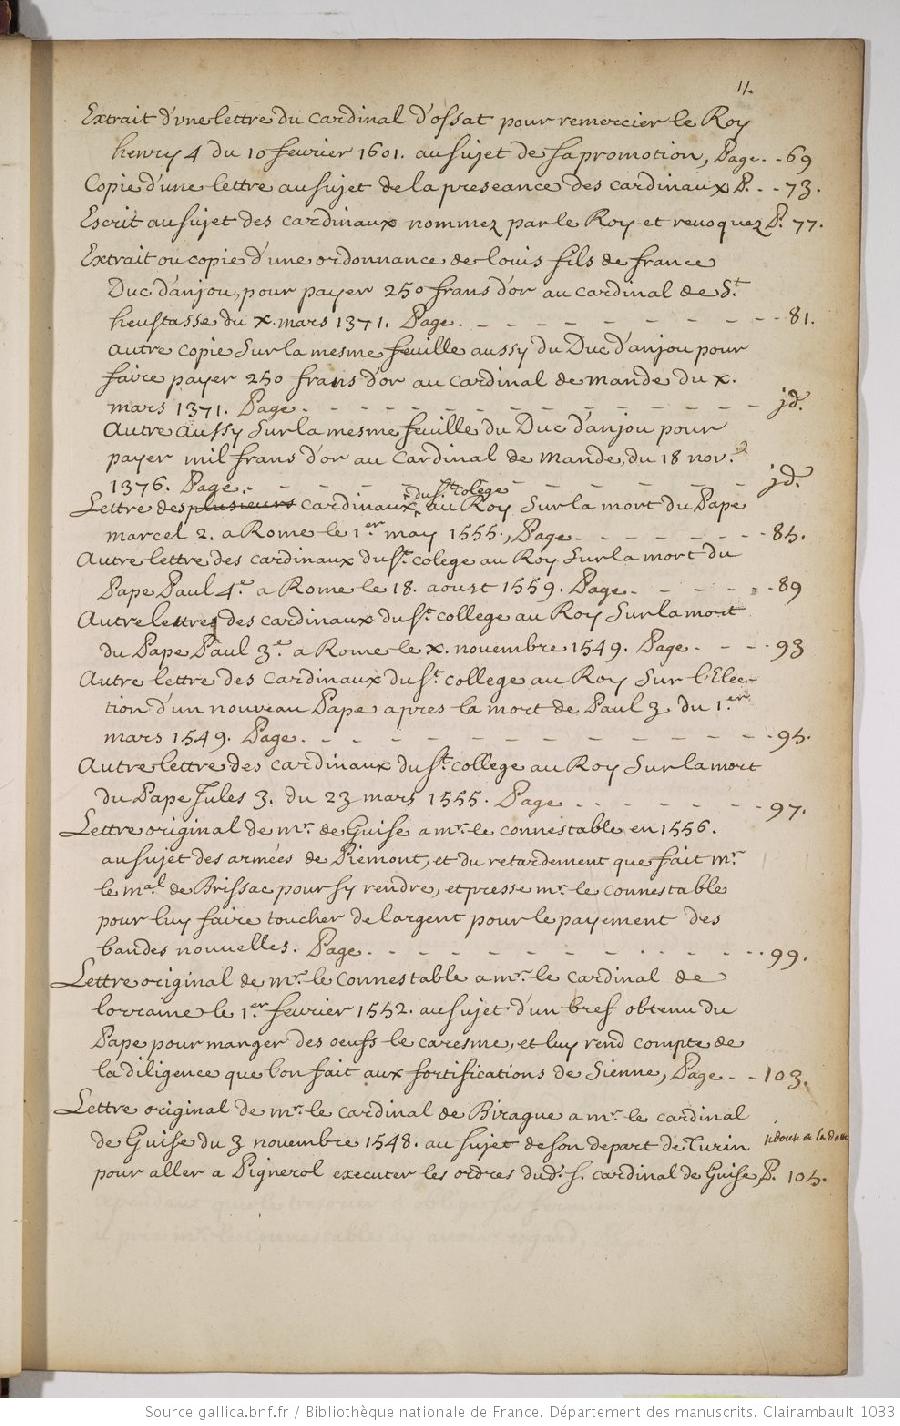 11.
Extrait d'vne lettre du Cardinal d'ossat pour remercier le Roy
henry 4 du 10 fevrier 1601. au sujet de sa promotion, Page. . 69
Copie d'une lettre au sujet de la preseance des cardinaux P. . . 73.
Escrit au sujet des cardinaux nommez par le Roy et revoquez P. 77.
Extrait ou copie d'une ordonnance de louis fils de france
Duc d'anjou, pour payer 250 frans d'or au cardinal de St.
heustasse du x. mars 1371. Page. - - - - - - - - - - - 81.
Autre copie sur la mesme feuille aussy du Duc d'anjou pour
faire payer 250 frans d'or au cardinal de mande du x.
mars 1371. Page. - - - - - - - - - - - - - jd.
Autre aussy sur la mesme feuille du Duc d'anjou pour
payer mil frans d'or au Cardinal de Mande, du 18 nov.
1376. Page. - - - - - - - - - - - - jd.
du St. colege
Lettre des plusieurs cardinaux, au Roy sur la mort du Pape
marcel 2. a Rome le 1er. may 1555, Page - - - - - - - 85.
Autre lettre des cardinaux du St. colege au Roy sur la mort du
Pape Paul 4e. a Rome le 18. aoust 1559. Page. - - - - - 89
Autre lettres des cardinaux du St. college au Roy sur la mort
du Pape Paul 3.e a Rome le x. novembre 1549. Page. - - - 93
Autre lettre des Cardinaux du St. college au Roy sur l'Elec-
tion d'un nouveau Pape, apres la mort de Paul 3. du 1.er
mars 1549. Page. - - - - - - - - - - - - - - 95.
Autre lettre des cardinaux du St. college au Roy sur la mort
du Pape Jules 3. du 23 mars 1555. Page - - - - - - - 97.
Lettre original de mr. de Guise a mr. le connestable en 1556.
au sujet des armées de Piemont, et du retardement que fait mr.
le mal. de Brissac pour sy rendre, et presse mr. le connestable
pour luy faire toucher de largent pour le payement des
bandes nouvelles. Page. - - - - - - - - - - - - - 99.
Lettre original de mr. le Connestable a mr. le cardinal de
lorraine le 1.er fevrier 1552. au sujet d'un bref obtenu du
Pape pour manger des oeufs le caresme, et luy rend compte de
la diligence que lon fait aux fortifications de Sienne, Page - - 103.
Lettre original de mr. le cardinal de Birague a mr. le cardinal
de Guise du 3 novembre 1548. au sujet de son depart de Turin
pour aller a Pignerol executer les ordres dud. s. cardinal de Guise, P. 105.
Source gallica.bnf.fr / Bibliothèque nationale de France. Département des manuscrits. Clairambault 1033